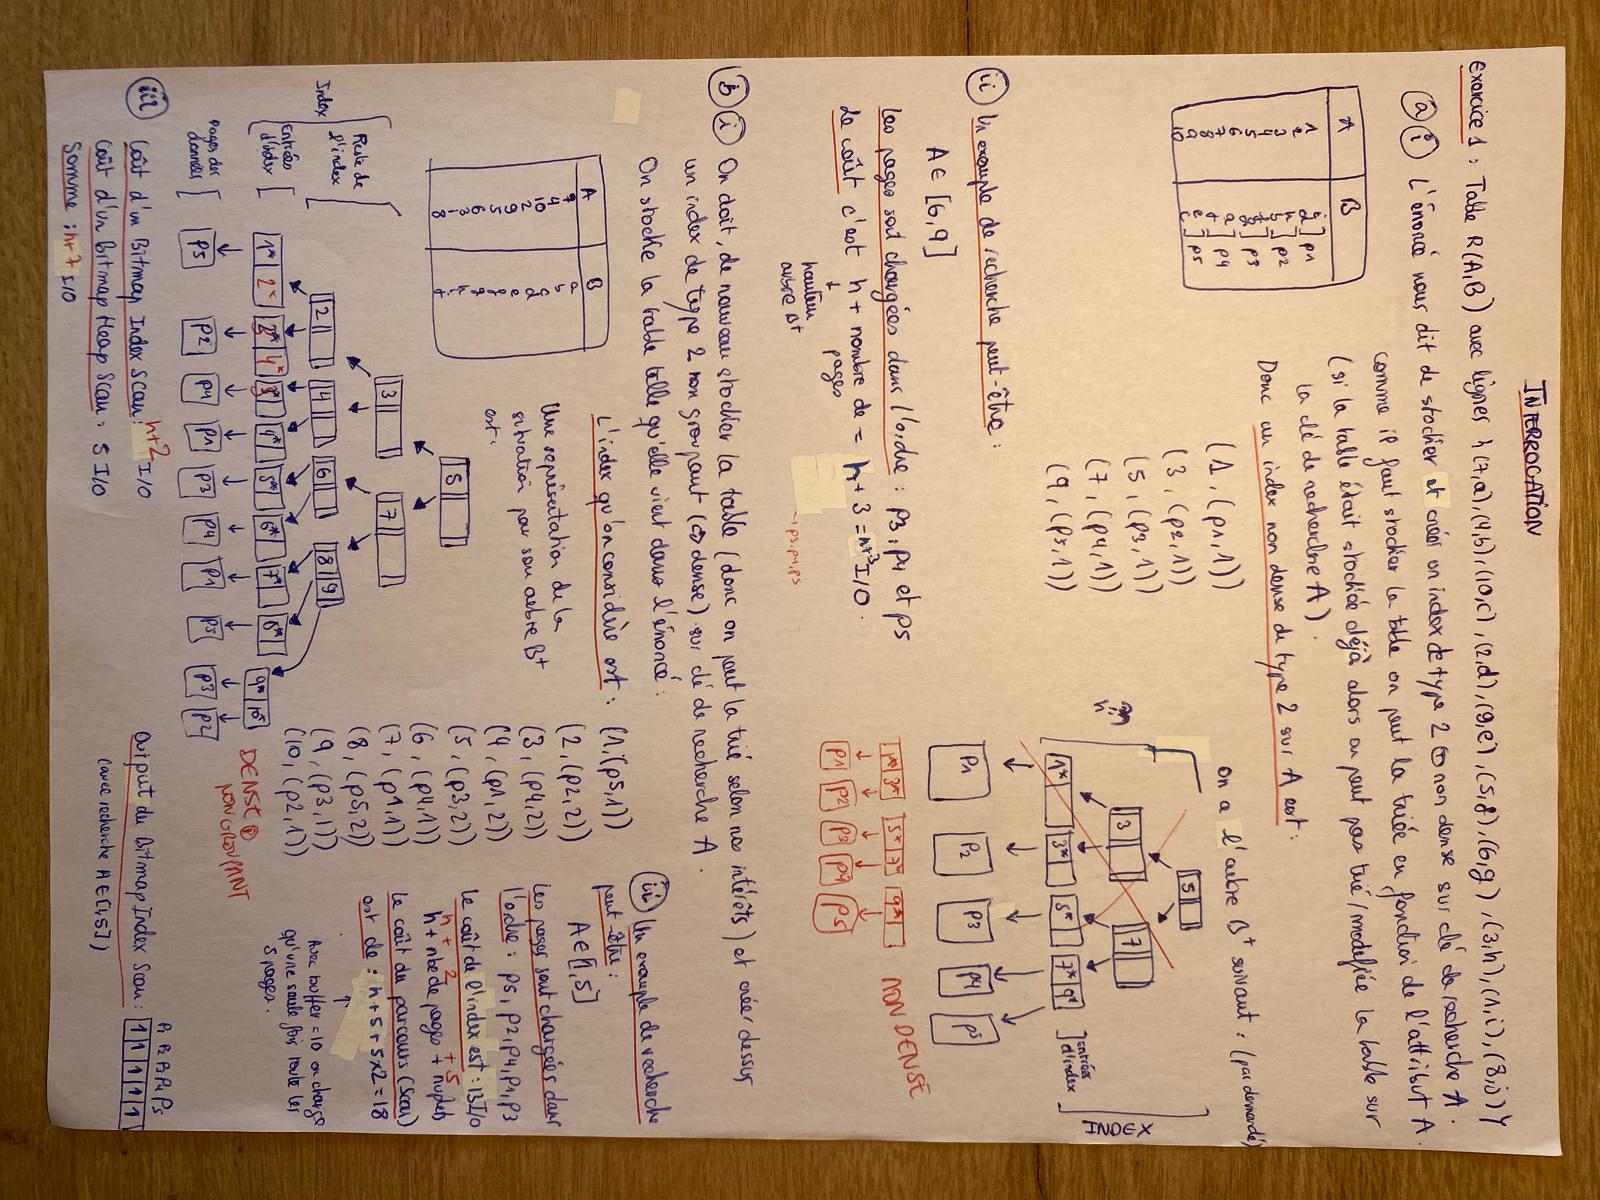 INTERROGATION
Exercice 1 : Table R(A,B) avec lignes { (7,a),(4,b),(10,c),(2,d),(9,e),(5,f),(6,g),(3,h),(1,i),(8,j)}
a i L'énoncé nous dit de stocker et créer un index de type 2 non dense sur clé de recherche A.
comme il faut stocker la table on peut la triée en fonction de l'attribut A.
(si la table était stockée déjà alors on peut pas trié/modifiée la table sur
la clé de recherche A).
Donc un index non dense de type 2 sur A est :
A B
1 i
2 d ] p1
3 h
4 b ] p2
5
6 g ] p3
7 a
8 ] p4
9 e
10 c ] p5
(1, (p1,1))
(3, (p2,1))
(5, (p3,1))
(7, (p4,1))
(9, (p5,1))
On a l'arbre B+ suivant : (pas demandé)
5
3 7
1* 3* 5* 7* 9*
] entrées d'index
INDEX
P1 P2 P3 P4 P5
1* 3* 5* 7* 9*
NON DENSE
P1 P2 P3 P4 P5
ii Un exemple de recherche peut-être :
A ∈ [6,9]
Les pages sont chargées dans l'ordre : p3, p4 et p5
Le coût c'est h + nombre de pages = h + 3 = h+3 I/O.
↓
hauteur
arbre B+
→ p3,p4,p5
b i On doit, de nouveau stocker la table (donc on peut la trié selon nos intérêts) et créer dessus
un index de type 2 non groupant (<=> dense) sur clé de recherche A.
On stocke la table telle qu'elle vient dans l'énoncé :
A B
7 a
4 b
10
2 d
9 e
5
6 g
3 h
1 i
8
L'index qu'on considère est :
(1,(p5,1))
(2, (p2,2))
(3, (p4,2))
(4, (p1,2))
(5, (p3,2))
(6, (p4,1))
(7, (p1,1))
(8, (p5,2))
(9, (p3,1))
(10, (p2,1))
Une représentation de la
situation par son arbre B+
est :
5
3 7
2 4 6 8 9
1* 2* 3* 4* 4* 5* 6* 7* 8* 9* 10*
P5 P2 P4 P1 P3 P4 P1 P5 P3 P2
Index
Reste de
l'index
Entrées
d'index
Pages des
données
DENSE
NON GROUPANT
ii Un exemple de recherche
peut-être :
A ∈ [1,5]
Les pages sont chargées dans
l'ordre : p5, p2, p4, p1, p3
Le coût de l'index est : 13 I/O
h + 2 + 5
h + nbe de pages + nuplets
Le coût du parcours (Scan)
est de : h+5+5x2=18
↑
Avec buffer = 10 on charge
qu'une seule fois toute les
5 pages.
iii Coût d'un Bitmap Index Scan : h+2 I/O
Coût d'un Bitmap Heap Scan : 5 I/O
Somme : h+7 I/O
P1 P2 P3 P4 P5
Output du Bitmap Index Scan : 1 1 1 1 1
(avec recherche A∈[1,5])